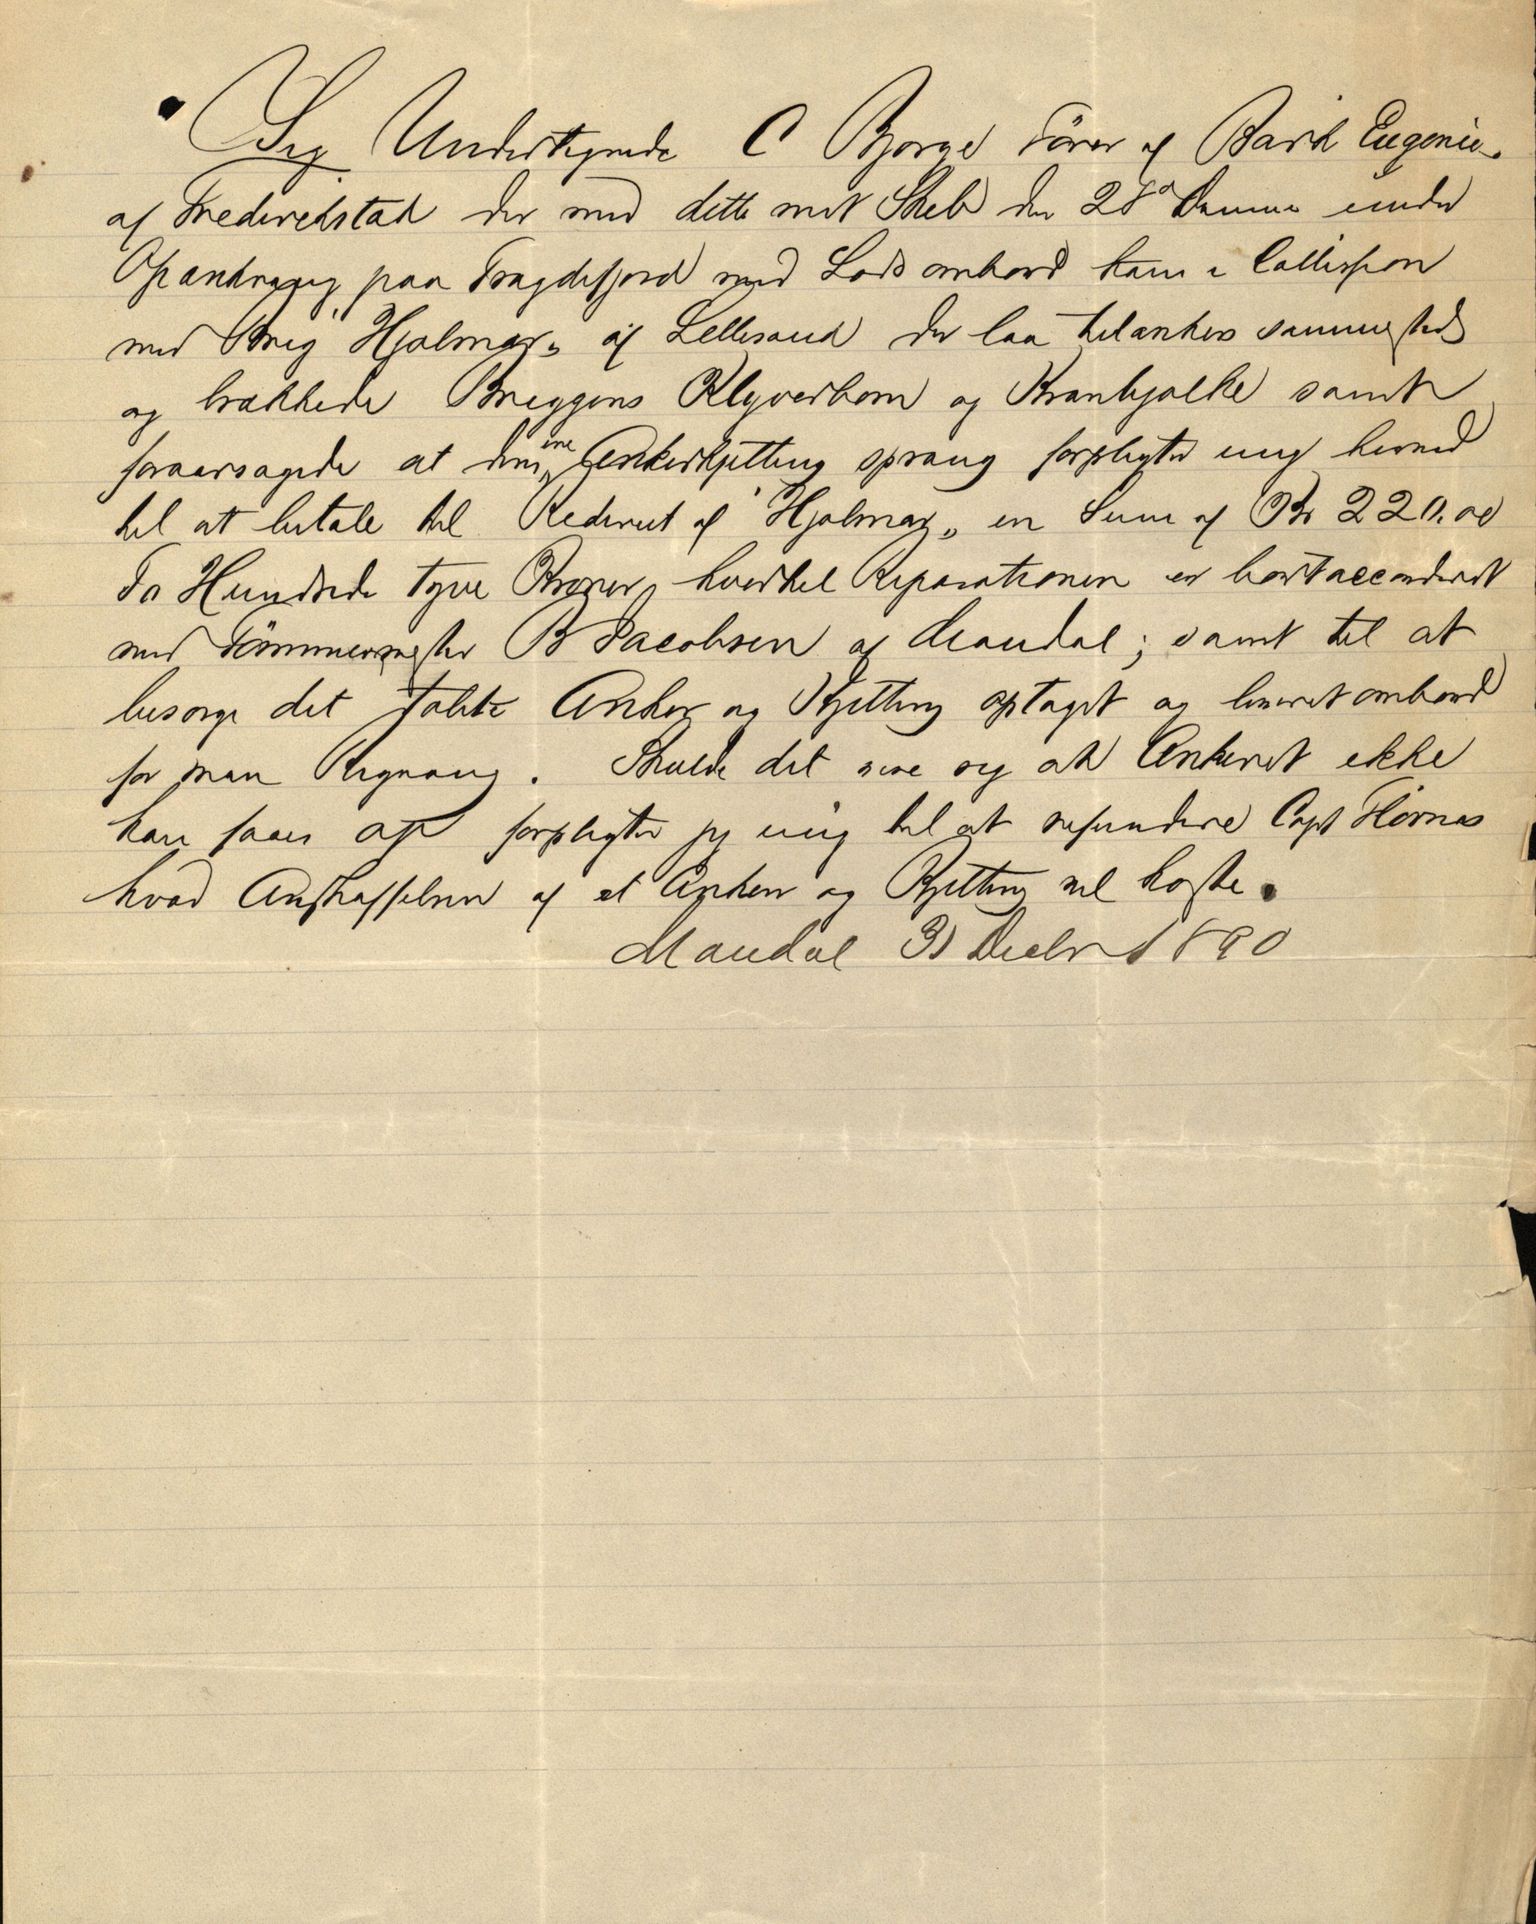 Jeg Undertegnede C Bjorge Förer af Bark Eugenie"
af Frederikstad der med dette mit Skib den 28de Dennes under
Opankring paa Fragdefjord med Lods ombord kom i Collission
med Brig "Hjalmar" af Lillesand der laa tilankers sammesteds
og brækkede Briggens Klyverbom og Kranbjælke samt
foraarsagede at dens ene Ankerkjetting sprang forpligter mig herved
til at betale til Rederiet af "Hjalmar" en Sum af Kr 220.00
To Hundrede tyve Kroner, hvortil Reparationen er bortaccorderet
med Tömmermester B Jacobsen af Mandal; samt til at
besorge det tabte Anker og Kjetting optaget og leveret ombord
for min Regning. Skulde det vise sig at Ankeret ikke
kan faaes op forpligter jeg mig til at refundere Capt
hvad Anskaffelsen af et Anker og Kjetting vil koste.
Mandal 31 Decbr 1890